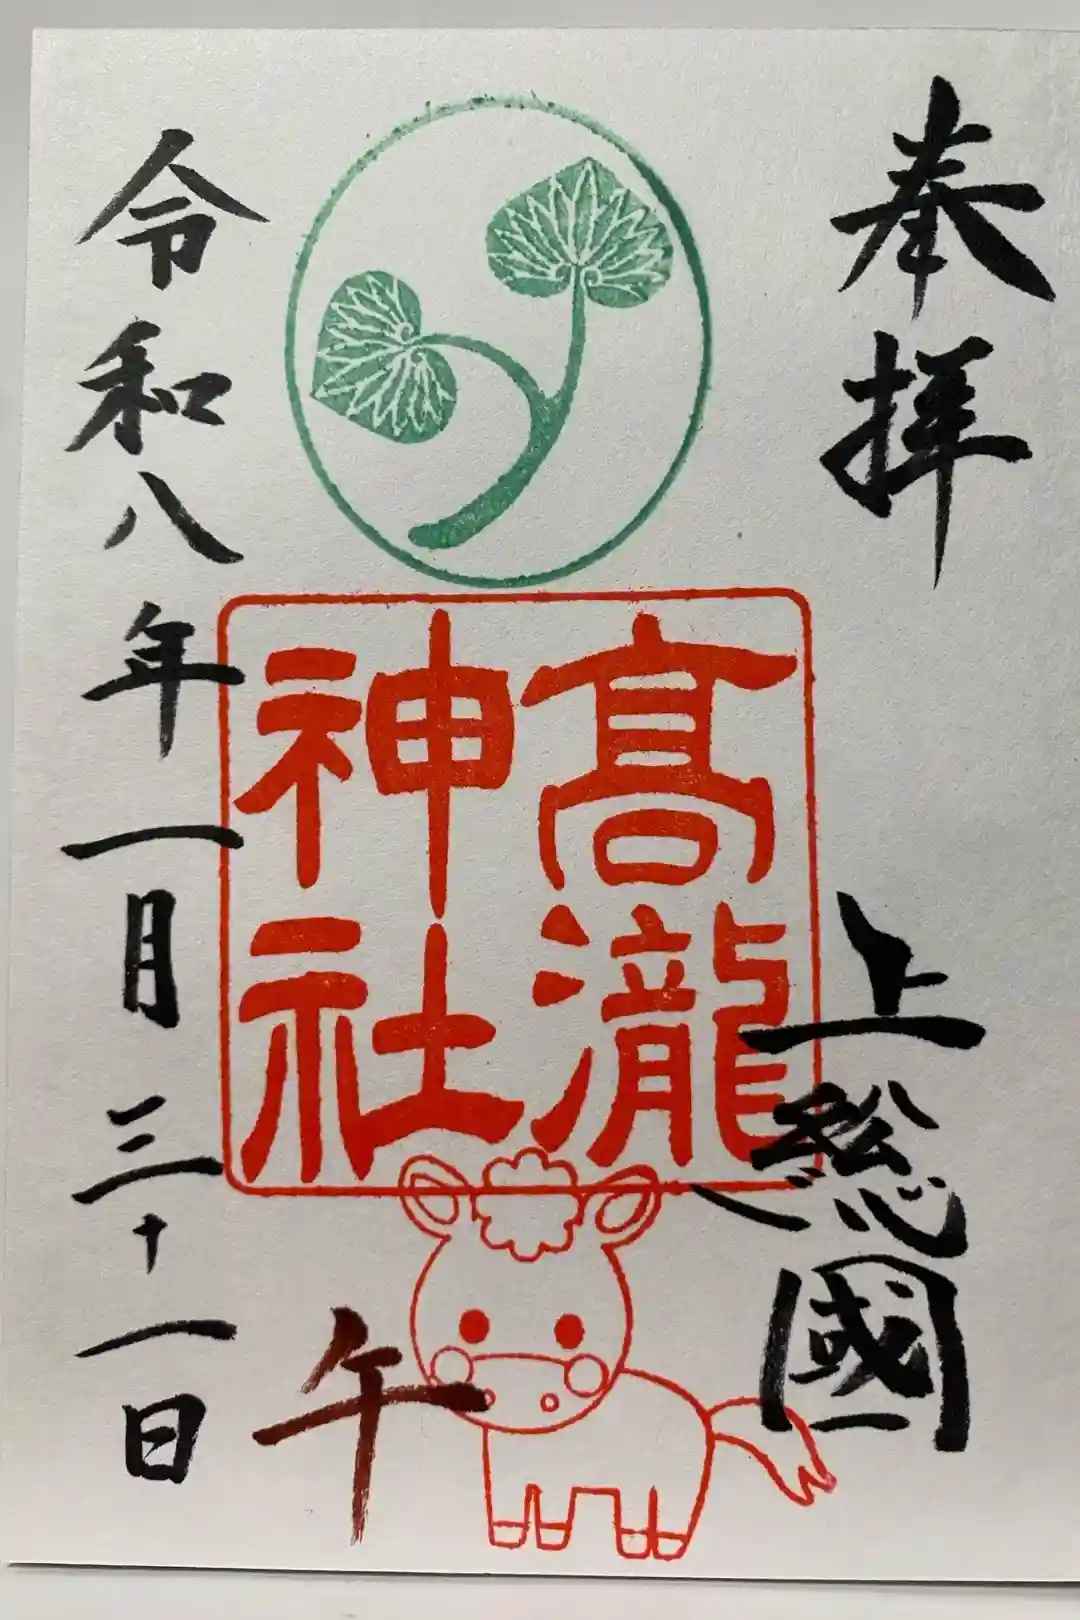 奉拝
上総國
髙瀧
神社
午
令和八年一月三十一日